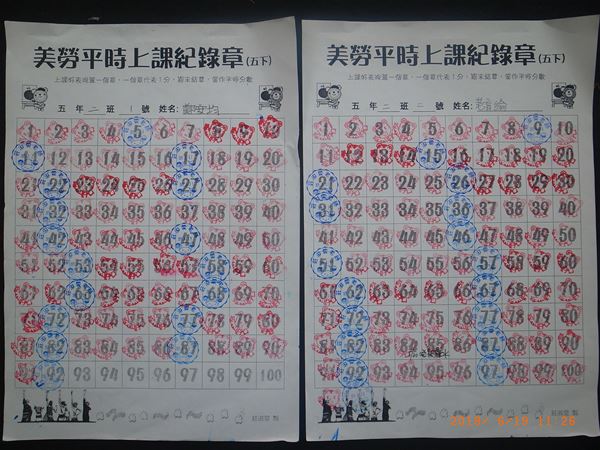 美勞平時上課紀錄章(五下)
上課好表現蓋一個章，一個章代表1分，期末結章，當作平時分數
五年二班1號 姓名:
1 2 3 4 5 6 7 8 9 10
11 12 13 14 15 16 17 18 19 20
21 22 23 24 25 26 27 28 29 30
31 32 33 34 35 36 37 38 39 40
41 42 43 44 45 46 47 48 49 50
51 52 53 54 55 56 57 58 59 60
61 62 63 64 65 66 67 68 69 70
71 72 73 74 75 76 77 78 79 80
81 82 83 84 85 86 87 88 89 90
91 92 93 94 95 96 97 98 99 100
美勞平時上課紀錄章(五下)
上課好表現蓋一個章，一個章代表1分，期末結章，當作平時分數
五年二班二號 姓名:
1 2 3 4 5 6 7 8 9 10
11 12 13 14 15 16 17 18 19 20
21 22 23 24 25 26 27 28 29 30
31 32 33 34 35 36 37 38 39 40
41 42 43 44 45 46 47 48 49 50
51 52 53 54 55 56 57 58 59 60
61 62 63 64 65 66 67 68 69 70
71 72 73 74 75 76 77 78 79 80
81 82 83 84 85 86 87 88 89 90
91 92 93 94 95 96 97 98 99 100
2019/ 6/19 11:26